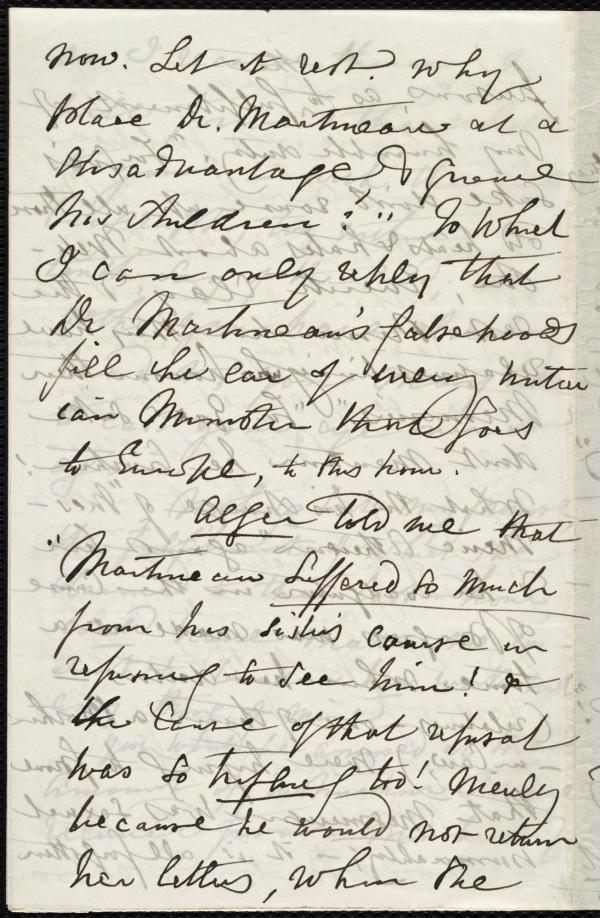 now. Let it rest. Why
place Dr. Martineau at a
disadvantage, & grieve
his children?" To which
I can only reply that
Dr Martineau's falsehoods
fill the ear of every Unitar
ian Minister that goes
to Europe, to this hour.
Alger told me that
"Martineau suffered so much
from his sister's course in
refusing to see him! &
the cause of that refusal
was so trifling too! Merely
because he would not return
her letters, when she